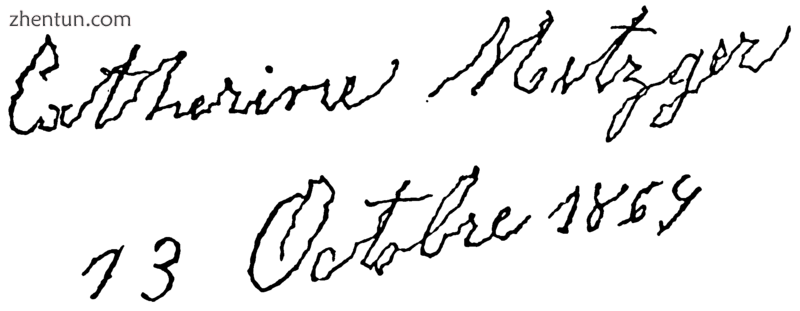 zhentun.com
Catherine Metzger
13 Octobre 1869